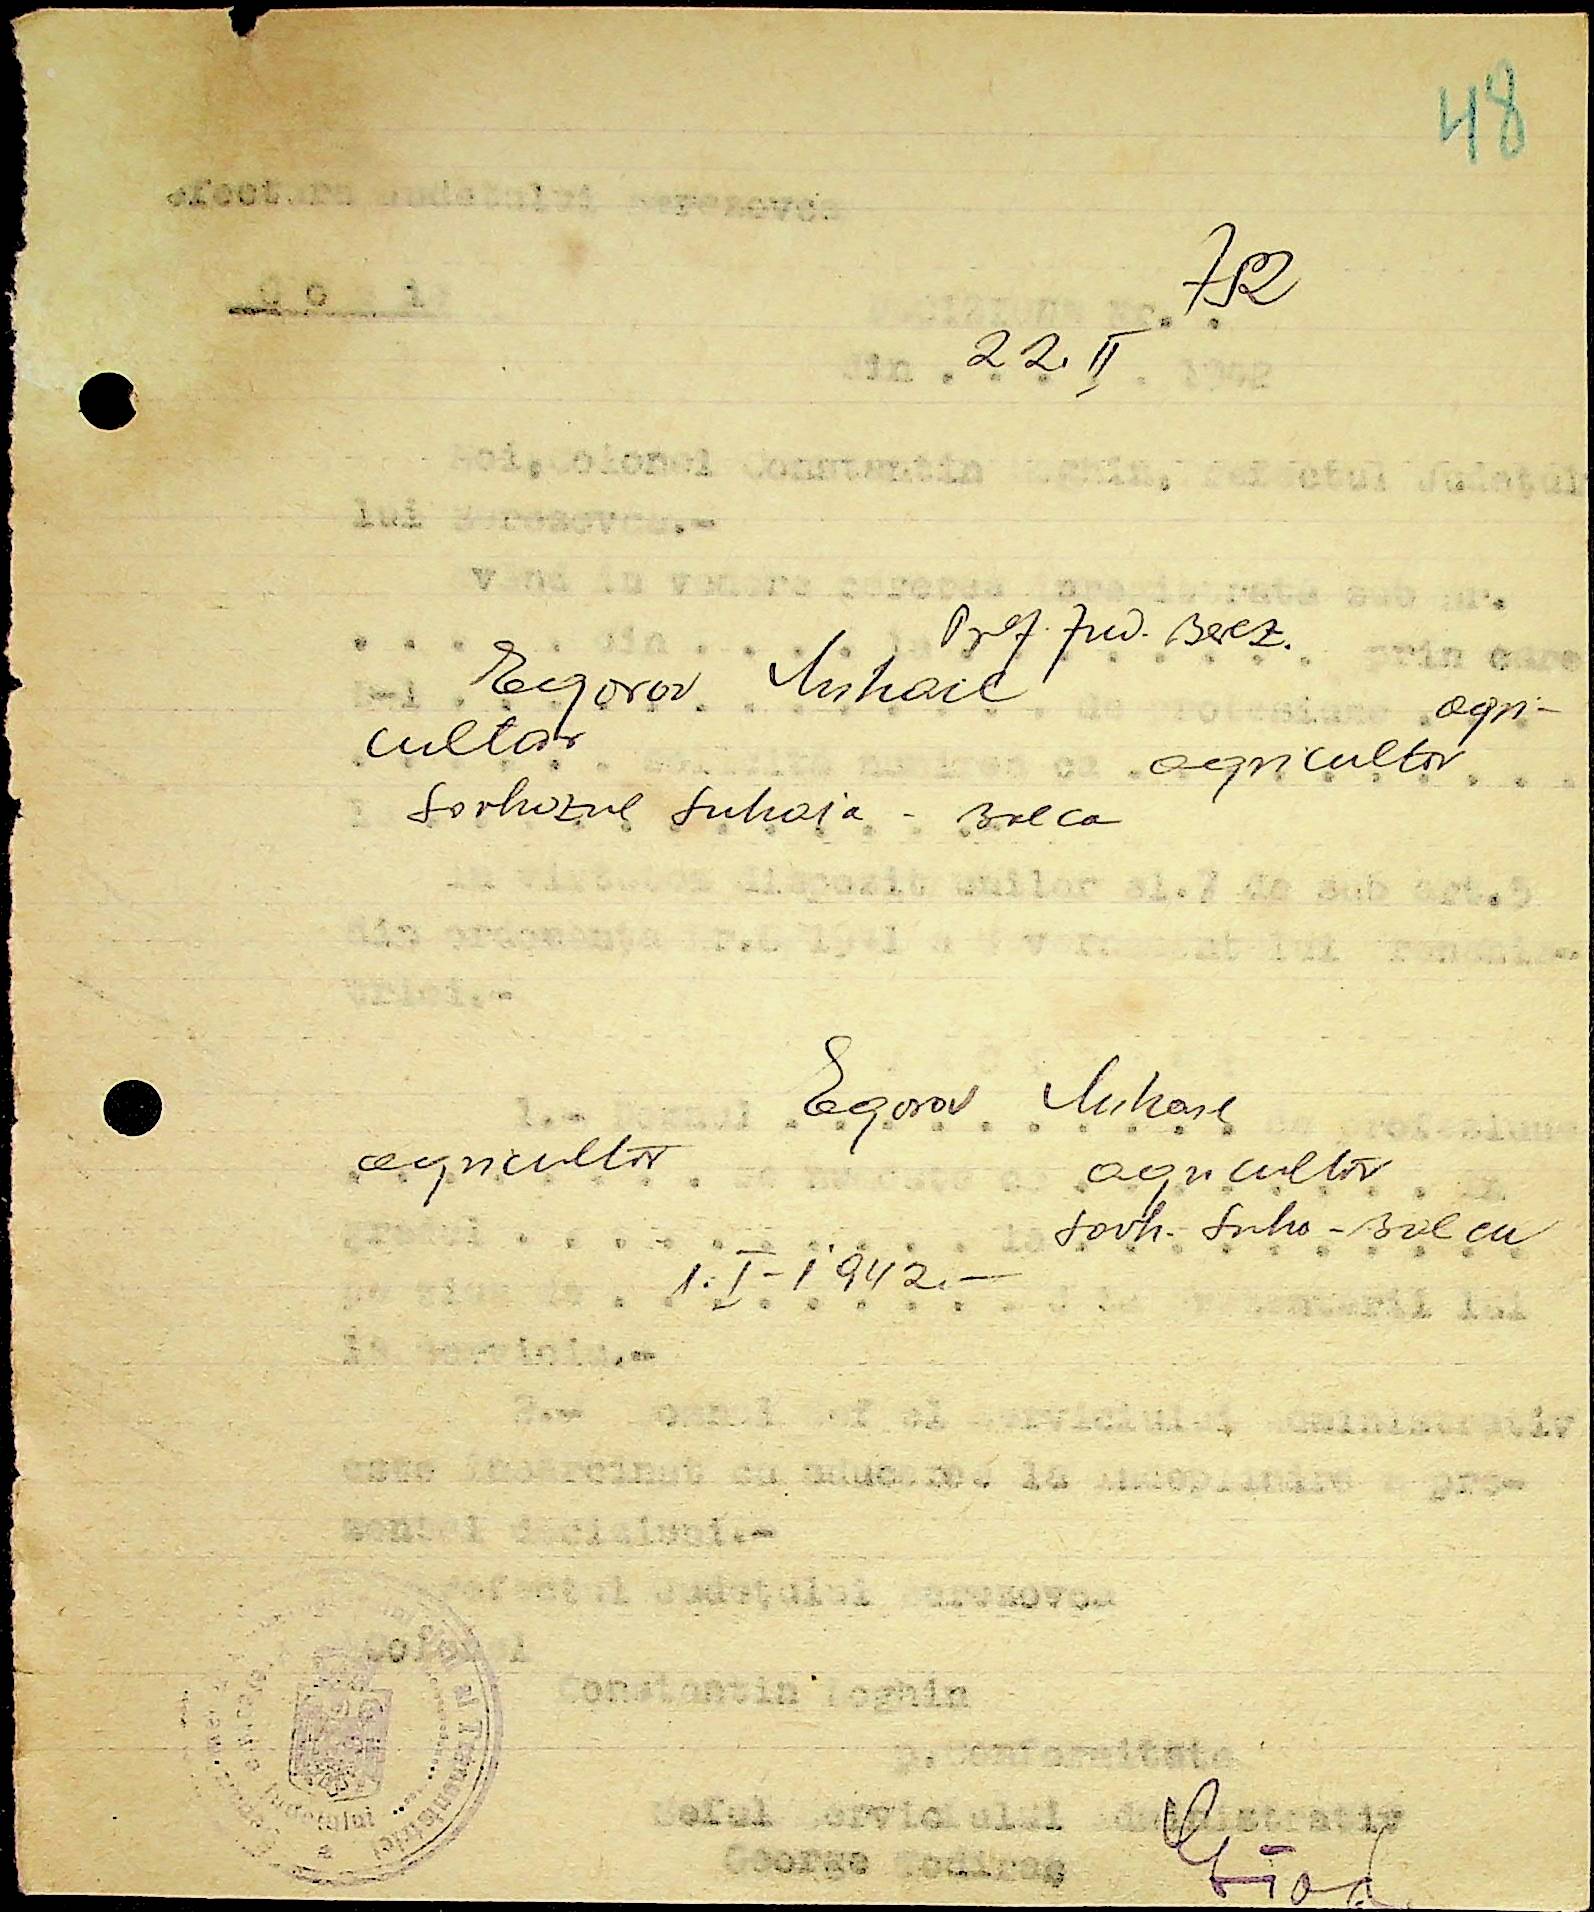 48
Prefectura Judetului Berezovca
Copie
Decisiune Nr. 752
din 22.II 1942
Noi, Colonel Constantin Loghin, Prefectul Judeţu-
lui Berezovca.-
Având in vedere cererea inregistrata sub Nr.
. . . . . din . . . . . la Pref. Jud. Berez. prin care
D-l Egorov Mihail de profesiune agri-
cultor solicita numirea ca agricultor
l Sovhozul Suhaia - Balca
In virtutea dispozitiunilor al. 7 de sub art.5
din ordonanţa Nr. 1941 a Guvernamantului Transnis-
triei.-
1.- Domnul Egorov Mihail de profesiune
agricultor se numeste ca agricultor
gradul . . . . . . . . . la Sovh. Suho - Balca
pe ziua de 1.I-1942.- lui
la serviciu.-
2.- Domnul Sef al Serviciului Administrativ
este insarcinat cu aducerea la indeplinire a pre-
zentei decisiuni.-
Prefectul Judeţului Berezovca
Colonel
Constantin Loghin
p.conformitate
Seful Serviciului Administrativ
George
al Transnistriei
Judetului